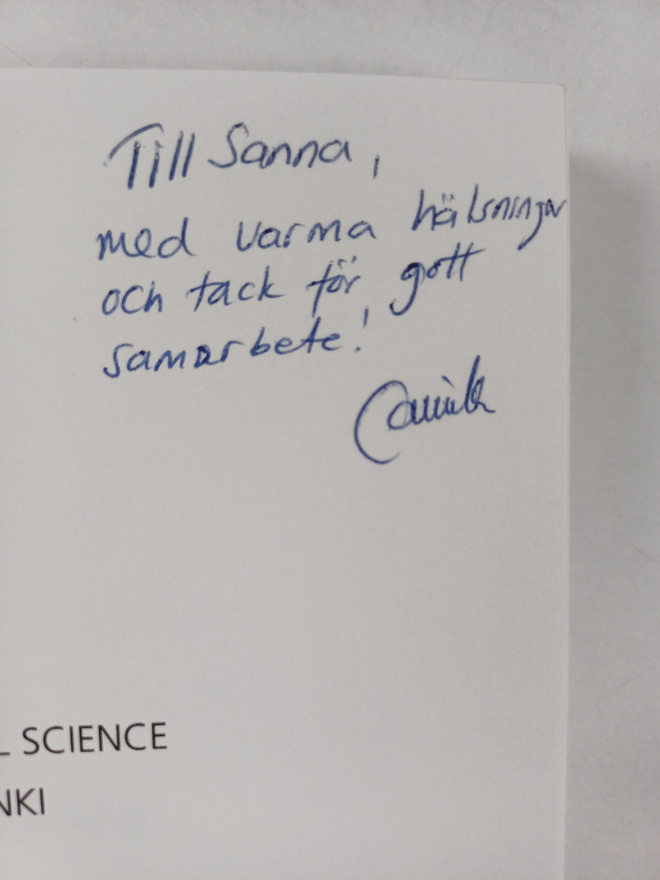 Till Sanna,
med varma hälsningar
och tack för gott
samarbete!
Camilla
L SCIENCE
NKI